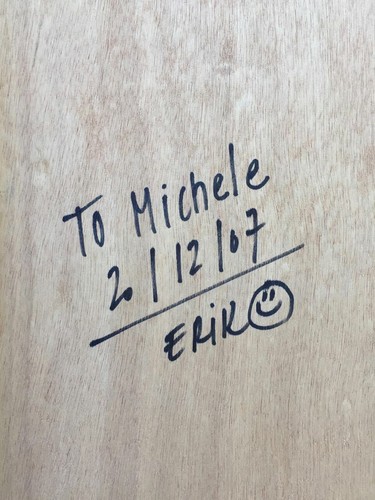 To Michele
20/12/07
ERIK